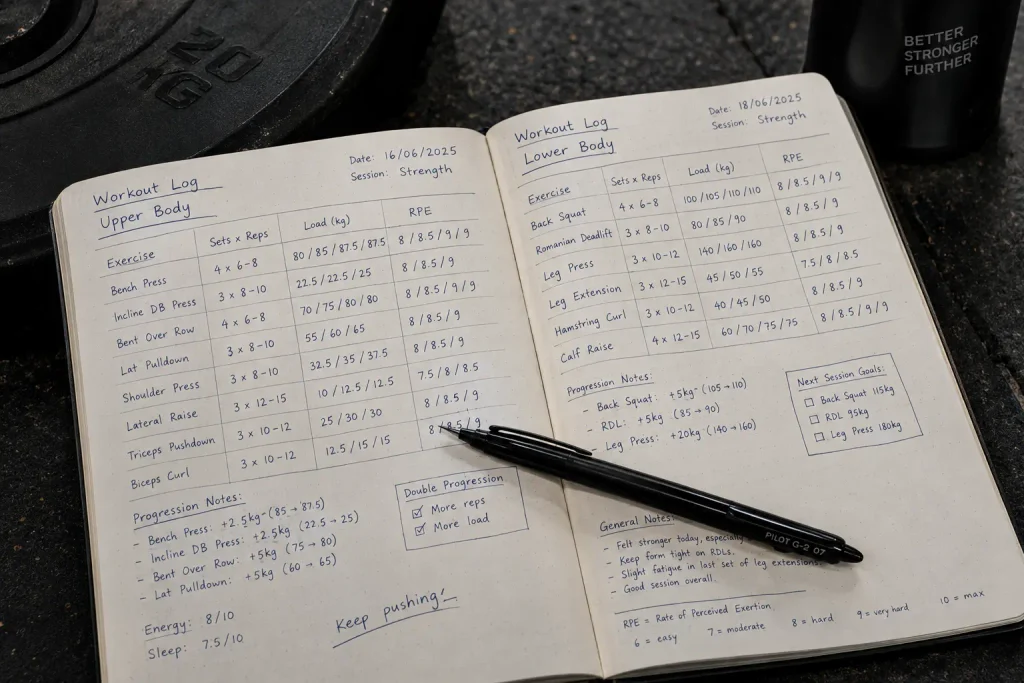 20
KG
BETTER
STRONGER
FURTHER
Workout Log
Upper Body
Date: 16/06/2025
Session: Strength
Exercise Sets x Reps Load (kg) RPE
Bench Press 4 x 6-8 80/85/87.5/87.5 8/8.5/9/9
Incline DB Press 3 x 8-10 22.5/22.5/25 8/8.5/9
Bent Over Row 4 x 6-8 70/75/80/80 8/8.5/9/9
Lat Pulldown 3 x 8-10 55/60/65 8/8.5/9
Shoulder Press 3 x 8-10 32.5/35/37.5 8/8.5/9
Lateral Raise 3 x 12-15 10/12.5/12.5 7.5/8/8.5
Triceps Pushdown 3 x 10-12 25/30/30 8/8.5/9
Biceps Curl 3 x 10-12 12.5/15/15 8/8.5/9
Progression Notes:
- Bench Press: +2.5kg (85→87.5)
- Incline DB Press: +2.5kg (22.5→25)
- Bent Over Row: +5kg (75→80)
- Lat Pulldown: +5kg (60→65)
Double Progression
☑ More reps
☑ More load
Energy: 8/10
Sleep: 7.5/10
Keep pushing!
Workout Log
Lower Body
Date: 18/06/2025
Session: Strength
Exercise Sets x Reps Load (kg) RPE
Back Squat 4 x 6-8 100/105/110/110 8/8.5/9/9
Romanian Deadlift 3 x 8-10 80/85/90 8/8.5/9
Leg Press 3 x 10-12 140/160/160 8/8.5/9
Leg Extension 3 x 12-15 45/50/55 7.5/8/8.5
Hamstring Curl 3 x 10-12 40/45/50 8/8.5/9
Calf Raise 4 x 12-15 60/70/75/75 8/8.5/9/9
Progression Notes:
- Back Squat: +5kg (105→110)
- RDL: +5kg (85→90)
- Leg Press: +20kg (140→160)
Next Session Goals:
☐ Back Squat 115kg
☐ RDL 95kg
☐ Leg Press 180kg
PILOT G-2 07
General Notes:
- Felt stronger today, especially
- Keep form tight on RDLs.
- Slight fatigue in last set of leg extensions.
- Good session overall.
RPE = Rate of Perceived Exertion
6 = easy 7 = moderate 8 = hard 9 = very hard 10 = max